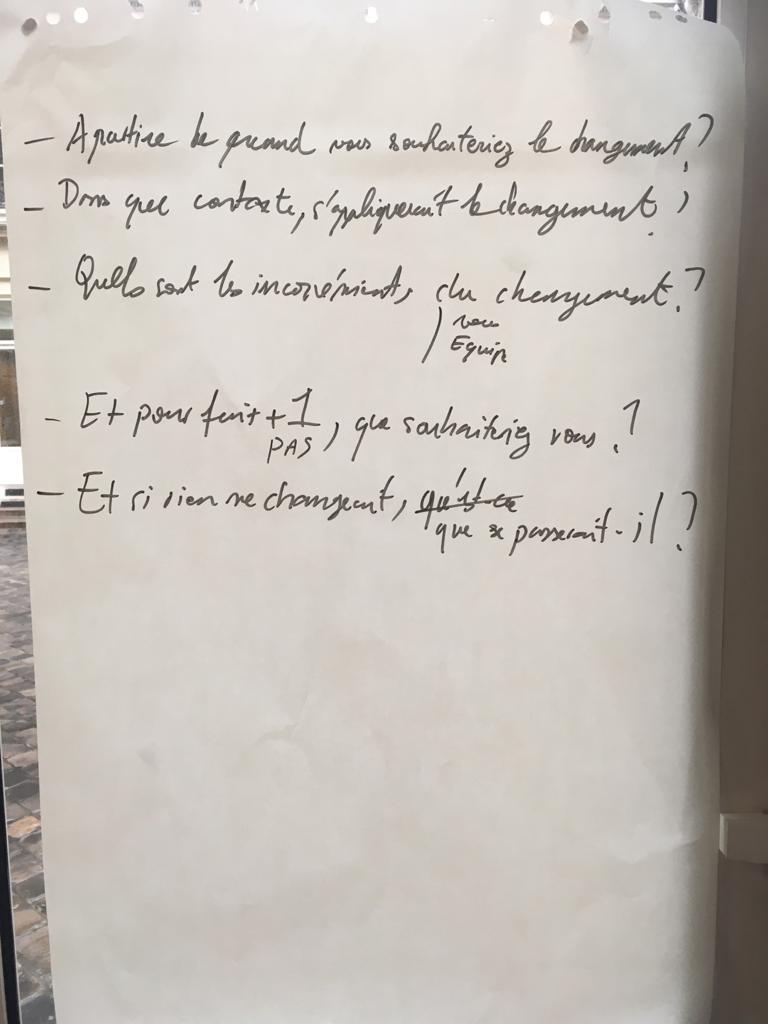 - A partire de quand vous souhaiteriez le changement ?
- Dans quel contexte, s'appliquerait le changement ?
- Quells sont les inconvénients, du changement ?
vous
Equipe
- Et pour fair + 1, que souhaiteriez vous ?
PAS
- Et si rien ne changeait, qu'est-ce
que se passerait-il ?